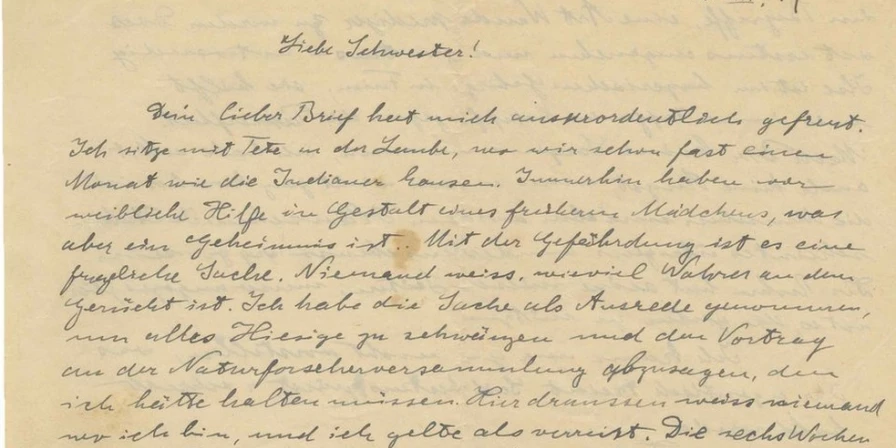 Liebe Schwester!
Dein lieber Brief hat mich ausserordentlich gefreut.
Ich sitze mit Tete in der Laube, wo wir schon fast einen
Monat wie die Indianer hausen. Immerhin haben wir
weibliche Hilfe in Gestalt eines früheren Mädchens, was
aber ein Geheimnis ist.. Mit der Gefährdung ist es eine
fragliche Sache. Niemand weiss, wieviel Wahres an dem
Gerücht ist. Ich habe die Sache als Ausrede genommen,
um alles Hiesige zu schwänzen und den Vortrag
an der Naturforscherversammlung abzusagen, den
ich hätte halten müssen. Hier draussen weiss niemand
wo ich bin, und ich gelte als verreist. Die sechs Wochen